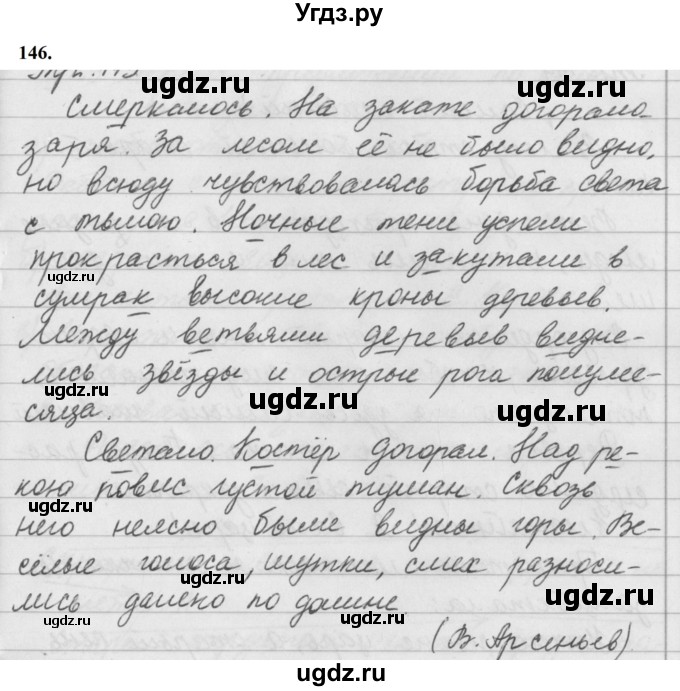 Угдз.ру
146.
ugdz.ru ugdz.ru
Смеркалось. На закате догорала
заря. За лесом её не было видно,
но всюду чувствовалась борьба света
ugdz.ru ugdz.ru
с тьмою. Ночные тени успели
прокрасться в лес и закутали в
ugdz.ru
сумрак высокие кроны деревьев.
ugdz.ru ugdz.ru
Между ветьвями деревьев видне-
лись звёзды и острые рога полуме-
ugdz.ru ugdz.ru
сяца.
Светало. Костёр догорал. Над ре-
ugdz.ru ugdz.ru
кою повис густой туман. Сквозь
него неясно были видны горы. Ве-
ugdz.ru
сёлые голоса, шутки, смех разноси-
ugdz.ru ugdz.ru
лись далеко по долине
(В. Арсеньев)
ugdz.ru